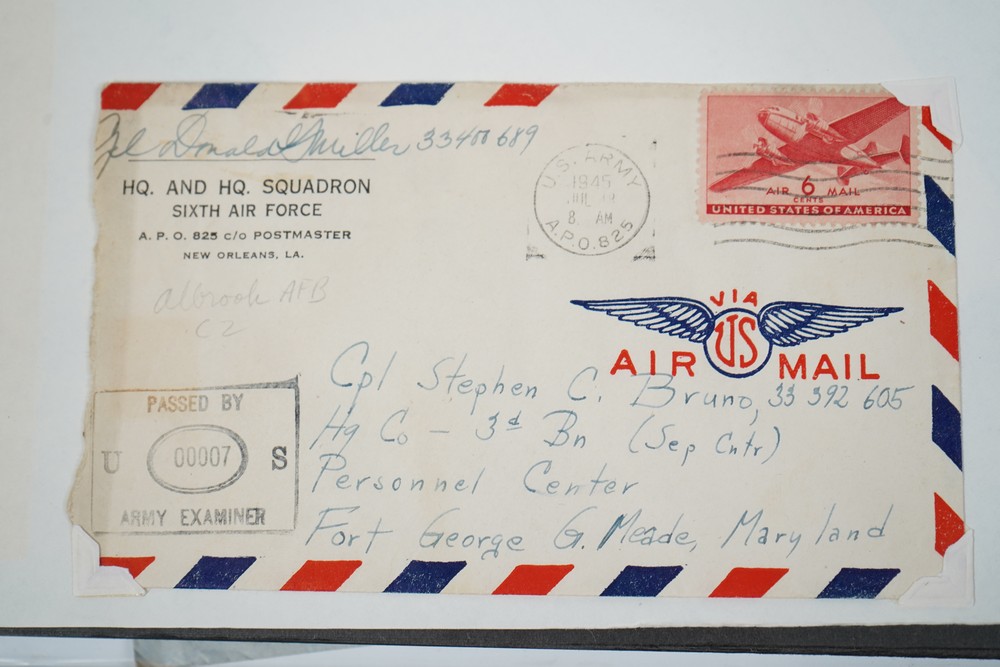 Cpl Donald S Miller 33400689
HQ. AND HQ. SQUADRON
SIXTH AIR FORCE
A. P. O. 825 c/o POSTMASTER
NEW ORLEANS, LA.
Albrook AFB
CZ
U.S. ARMY
1945
JUL
8 AM
A.P.O. 825
AIR 6 MAIL
CENTS
UNITED STATES OF AMERICA
VIA
AIR US MAIL
PASSED BY
U 00007 S
ARMY EXAMINER
Cpl Stephen C. Bruno, 33 392 605
Hq Co - 3d Bn (Sep Cntr)
Personnel Center
Fort George G. Meade, Maryland